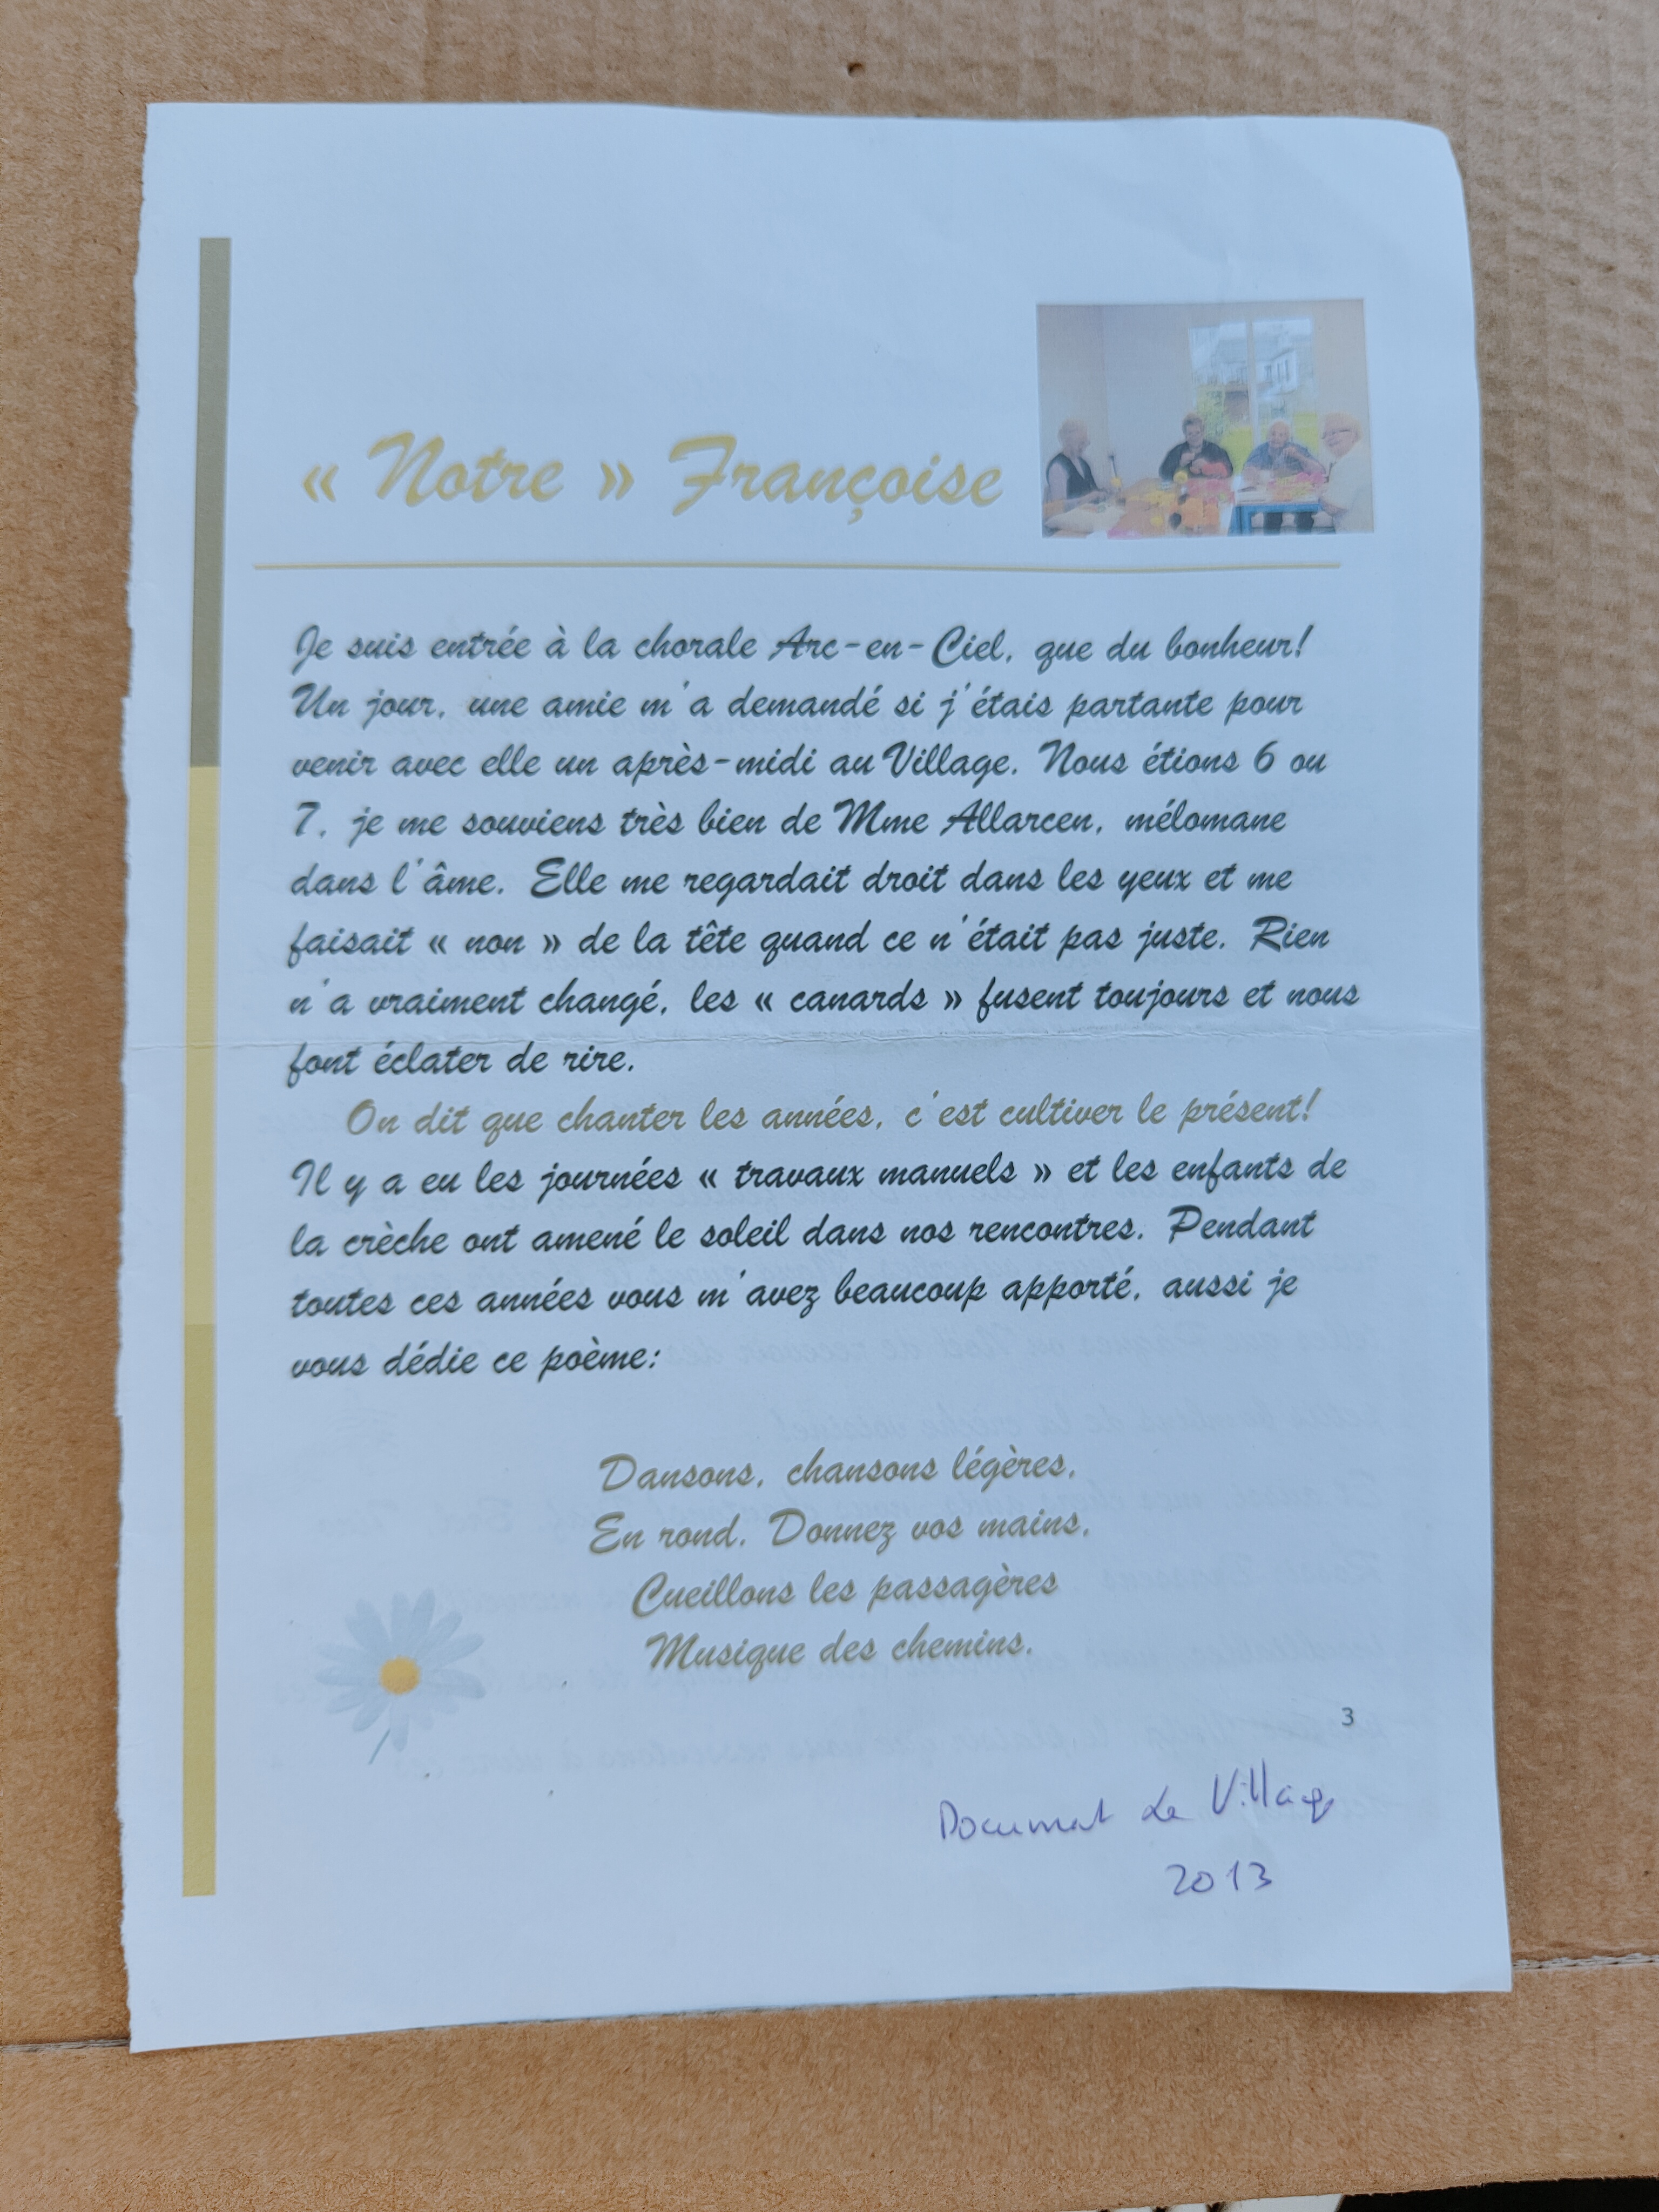 « Notre » Françoise
Je suis entrée à la chorale Arc-en-Ciel, que du bonheur!
Un jour, une amie m'a demandé si j'étais partante pour
venir avec elle un après-midi au Village. Nous étions 6 ou
7, je me souviens très bien de Mme Allarcen, mélomane
dans l'âme. Elle me regardait droit dans les yeux et me
faisait « non » de la tête quand ce n'était pas juste. Rien
n'a vraiment changé, les « canards » fusent toujours et nous
font éclater de rire.
On dit que chanter les années, c'est cultiver le présent!
Il y a eu les journées « travaux manuels » et les enfants de
la crèche ont amené le soleil dans nos rencontres. Pendant
toutes ces années vous m'avez beaucoup apporté, aussi je
vous dédie ce poème:
Dansons, chansons légères,
En rond. Donnez vos mains,
Cueillons les passagères
Musique des chemins.
3
Document Le Village
2013